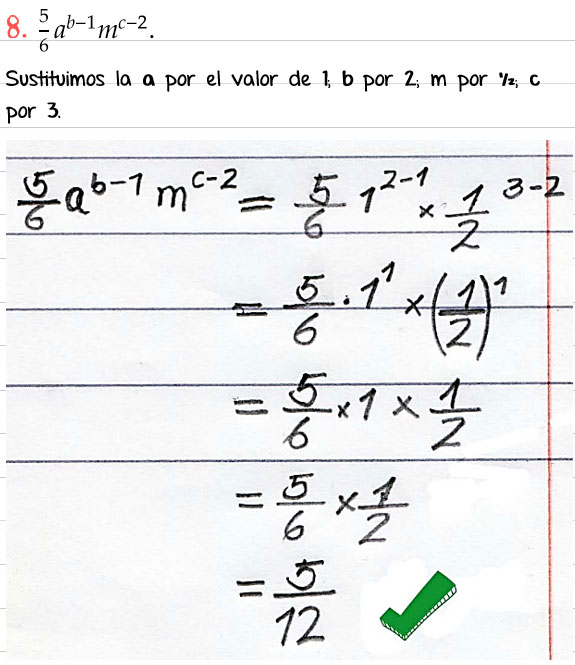 8. 5/6 a^(b−1) m^(c−2).
Sustituimos la a por el valor de 1; b por 2; m por ½; c
por 3.
5/6 a^(b−1) m^(c−2) = 5/6 1^(2−1) × 1/2 ^(3−2)
= 5/6 · 1^1 × (1/2)^1
= 5/6 × 1 × 1/2
= 5/6 × 1/2
= 5/12